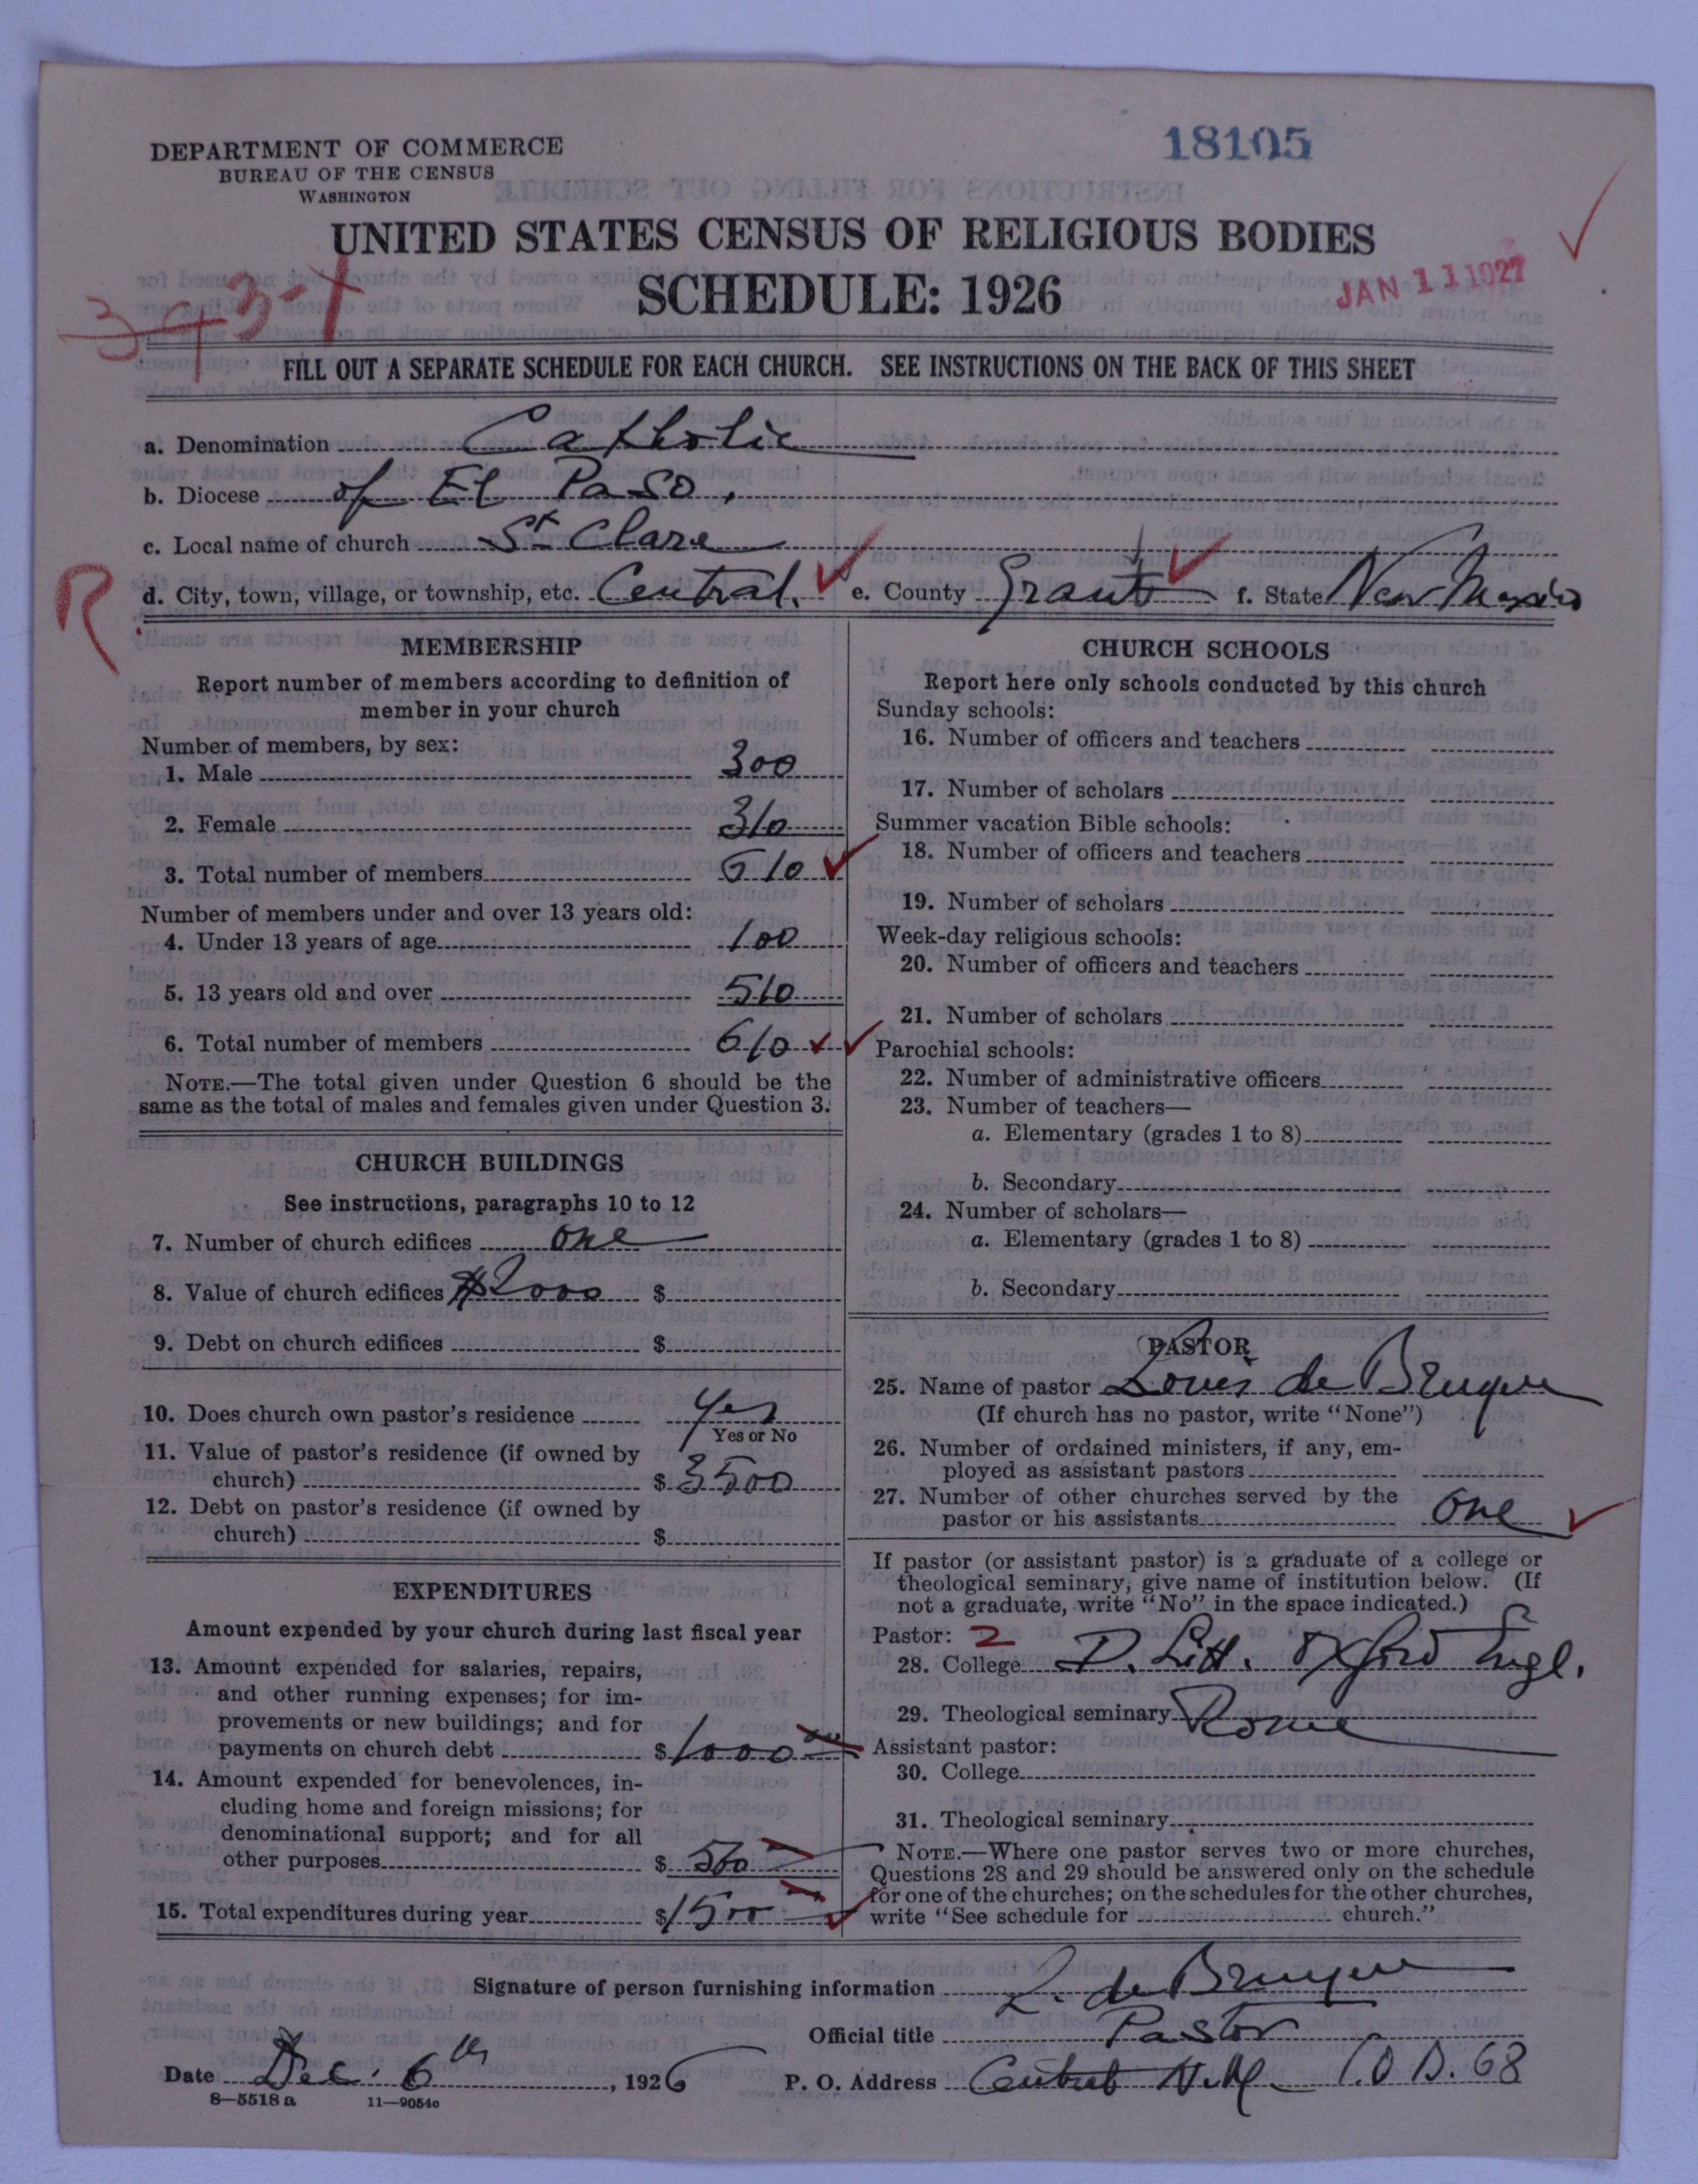 18105
DEPARTMENT OF COMMERCE
BUREAU OF THE CENSUS
WASHINGTON
UNITED STATES CENSUS OF RELIGIOUS BODIES
SCHEDULE: 1926
JAN 11 1927
343-1
FILL OUT A SEPARATE SCHEDULE FOR EACH CHURCH. SEE INSTRUCTIONS ON THE BACK OF THIS SHEET
a. Denomination Catholic
b. Diocese of El Paso.
c. Local name of church St Clare
R
d. City, town, village, or township, etc. Central. e. County Grant f. State New Mexico
MEMBERSHIP
Report number of members according to definition of
member in your church
Number of members, by sex:
1. Male 300
2. Female 310
3. Total number of members 610
Number of members under and over 13 years old:
4. Under 13 years of age 100
5. 13 years old and over 510
6. Total number of members 610
NOTE.—The total given under Question 6 should be the
same as the total of males and females given under Question 3.
CHURCH BUILDINGS
See instructions, paragraphs 10 to 12
7. Number of church edifices one
8. Value of church edifices $2000 $
9. Debt on church edifices $
10. Does church own pastor's residence Yes
Yes or No
11. Value of pastor's residence (if owned by
church) $ 3500
12. Debt on pastor's residence (if owned by
church) $
EXPENDITURES
Amount expended by your church during last fiscal year
13. Amount expended for salaries, repairs,
and other running expenses; for im-
provements or new buildings; and for
payments on church debt $ 1000
14. Amount expended for benevolences, in-
cluding home and foreign missions; for
denominational support; and for all
other purposes $ 500
15. Total expenditures during year $ 1500
CHURCH SCHOOLS
Report here only schools conducted by this church
Sunday schools:
16. Number of officers and teachers
17. Number of scholars
Summer vacation Bible schools:
18. Number of officers and teachers
19. Number of scholars
Week-day religious schools:
20. Number of officers and teachers
21. Number of scholars
Parochial schools:
22. Number of administrative officers
23. Number of teachers—
a. Elementary (grades 1 to 8)
b. Secondary
24. Number of scholars—
a. Elementary (grades 1 to 8)
b. Secondary
PASTOR
25. Name of pastor Louis de Bruyne
(If church has no pastor, write "None")
26. Number of ordained ministers, if any, em-
ployed as assistant pastors
27. Number of other churches served by the
pastor or his assistants one
If pastor (or assistant pastor) is a graduate of a college or
theological seminary, give name of institution below. (If
not a graduate, write "No" in the space indicated.)
Pastor: 2
28. College D. Litt. Oxford Engl.
29. Theological seminary Rome
Assistant pastor:
30. College
31. Theological seminary
NOTE.—Where one pastor serves two or more churches,
Questions 28 and 29 should be answered only on the schedule
for one of the churches; on the schedules for the other churches,
write "See schedule for church."
Signature of person furnishing information L. de Bruyne
Official title Pastor
Date Dec. 6th, 1926 P. O. Address Central N.M. P.O.B. 68
8—5518a 11—9054c